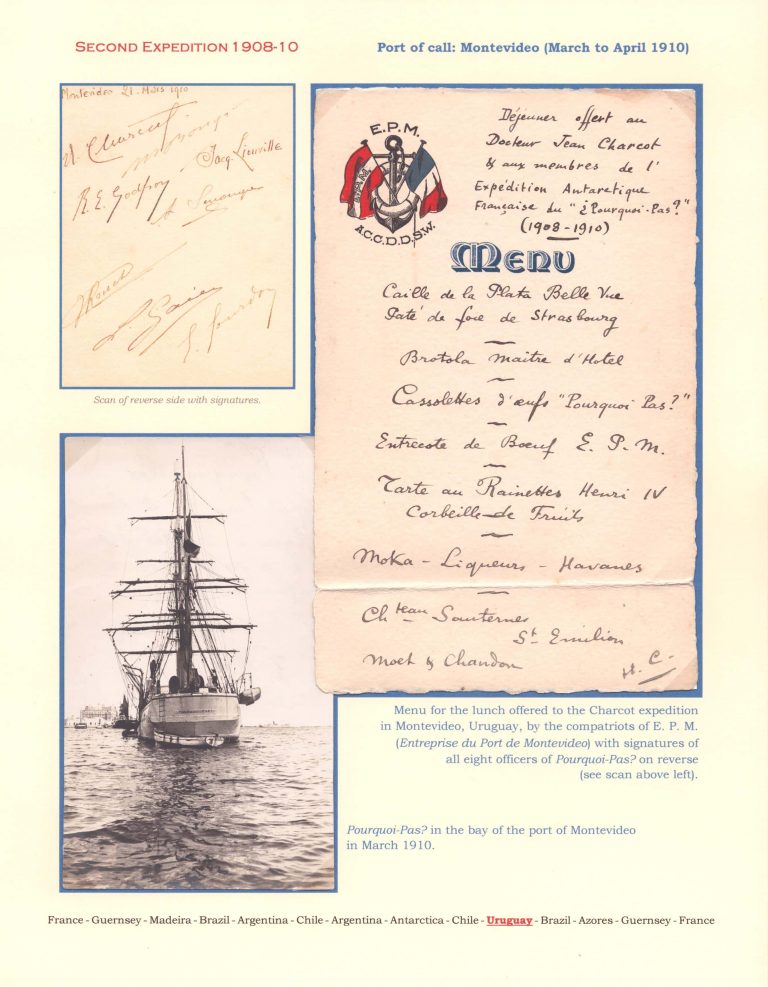 SECOND EXPEDITION 1908-10
Port of call: Montevideo (March to April 1910)
Montevideo 21 Mars 1910
J. Charcot
Jacq. Liouville
R. E. Godfroy
A. Senouque
J Rouch
L. Gain
E. Gourdon
Scan of reverse side with signatures.
E.P.M.
A.C.C.D.D.S.W.
Déjeuner offert au
Docteur Jean Charcot
& aux membres de l'
Expédition Antarctique
Française du "¿Pourquoi-Pas?"
(1908-1910)
MENU
Caille de la Plata Belle Vue
Paté de foie de Strasbourg
Brotola maitre d'Hotel
Cassolettes d'œufs "Pourquoi Pas?"
Entrecote de Bœuf E. P. M.
Tarte au Rainettes Henri IV
Corbeille de Fruits
Moka - Liqueurs - Havanes
Chteau Sauternes
St Emilion
Moet & Chandon
H. C.
Menu for the lunch offered to the Charcot expedition
in Montevideo, Uruguay, by the compatriots of E. P. M.
(Entreprise du Port de Montevideo) with signatures of
all eight officers of Pourquoi-Pas? on reverse
(see scan above left).
Pourquoi-Pas? in the bay of the port of Montevideo
in March 1910.
France - Guernsey - Madeira - Brazil - Argentina - Chile - Argentina - Antarctica - Chile - Uruguay - Brazil - Azores - Guernsey - France